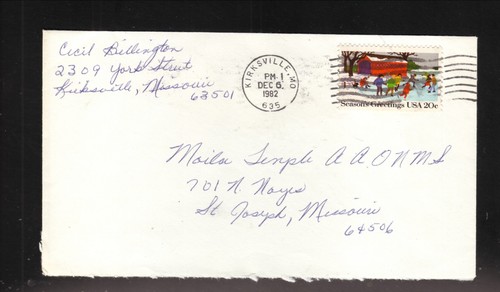 Cecil Billington
2309 York Street
Kirksville, Missouri
63501
KIRKSVILLE, MO
PM
DEC 6
1982
635
Season's Greetings USA 20c
Moila Temple A A O N M S
701 N. Noyes
St Joseph, Missouri
64506